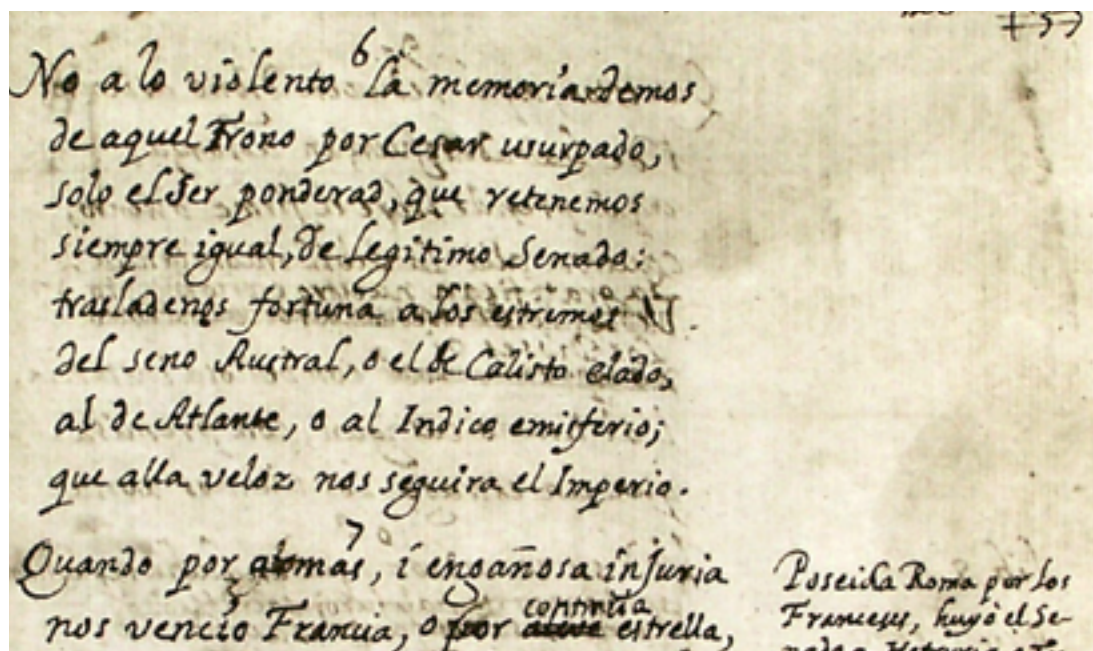 6
No a lo violento la memoria demos
de aquel Trono por Cesar usurpado,
solo el Ser ponderad, que retenemos
siempre igual, de legitimo Senado:
trasladenos fortuna a los estremos
del seno Austral, o el de Calisto elado,
al de Atlante, o al Indico emisferio;
que alla veloz nos seguira el Imperio.
7
Quando por, i engañosa injuria
nos vencio Francia, o por contraria estrella,
Poseida Roma por los
Franceses, huyò el Se-
nado a